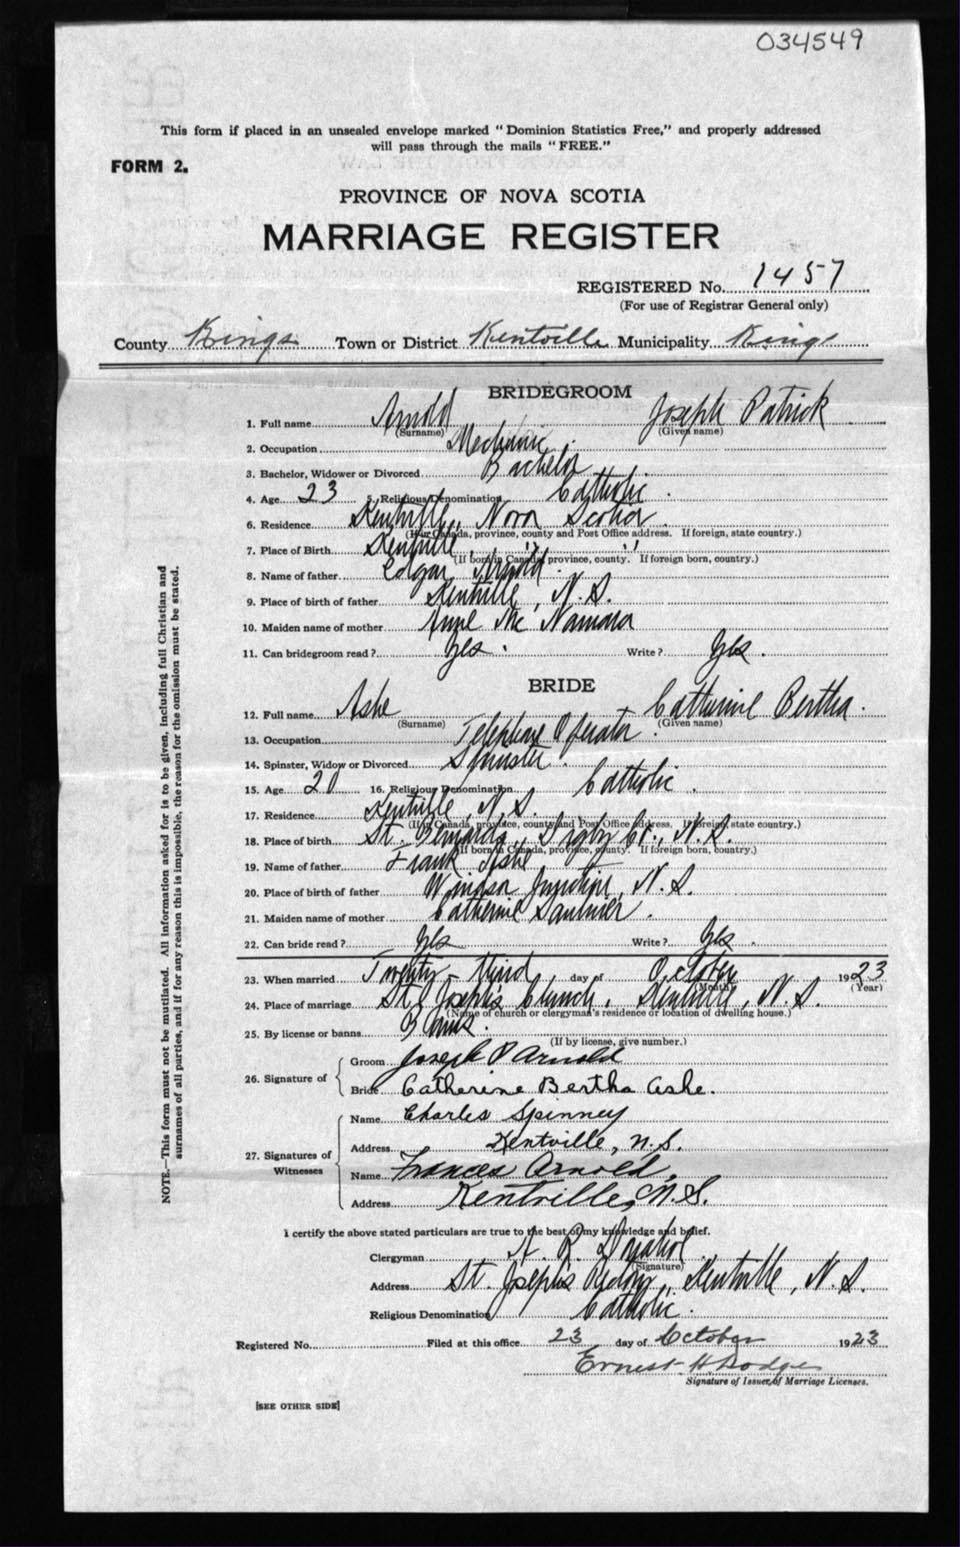 034549
This form if placed in an unsealed envelope marked "Dominion Statistics Free," and properly addressed
will pass through the mails "FREE."
FORM 2.
PROVINCE OF NOVA SCOTIA
MARRIAGE REGISTER
REGISTERED No. 1457
(For use of Registrar General only)
County Kings Town or District Kentville Municipality Kings
BRIDEGROOM
1. Full name Arnold Joseph Patrick
(Surname) (Given name)
2. Occupation Mechanic
3. Bachelor, Widower or Divorced Bachelor
4. Age 23 5. Religious Denomination Catholic
6. Residence Kentville, Nova Scotia
(If in Canada, province, county and Post Office address. If foreign, state country.)
7. Place of Birth Kentville " "
(If born in Canada, province, county. If foreign born, country.)
8. Name of father Edgar Arnold
9. Place of birth of father Kentville, N.S.
10. Maiden name of mother Anne Mc Namara
11. Can bridegroom read? Yes Write? Yes
BRIDE
12. Full name Ashe Catherine Bertha
(Surname) (Given name)
13. Occupation Telephone Operator
14. Spinster, Widow or Divorced Spinster
15. Age 20 16. Religious Denomination Catholic
17. Residence Kentville, N.S.
(If in Canada, province, county and Post Office address. If foreign, state country.)
18. Place of birth St. Bernards, Digby Co., N.S.
(If born in Canada, province, county. If foreign born, country.)
19. Name of father Frank Ashe
20. Place of birth of father Windsor Junction, N.S.
21. Maiden name of mother Catherine Saulnier
22. Can bride read? Yes Write? Yes
23. When married Twenty-third day of October 1923
(Month) (Year)
24. Place of marriage St. Joseph's Church, Kentville, N.S.
(Name of church or clergyman's residence or location of dwelling house.)
25. By license or banns Banns
(If by license, give number.)
26. Signature of Groom Joseph P Arnold
Bride Catherine Bertha Ashe.
27. Signatures of Witnesses
Name Charles Spinney
Address Kentville, N.S.
Name Frances Arnold,
Address Kentville, N.S.
I certify the above stated particulars are true to the best of my knowledge and belief.
Clergyman A. R. Donahoe
(Signature)
Address St. Joseph's Rectory, Kentville, N.S.
Religious Denomination Catholic.
Registered No. Filed at this office 23 day of October 1923
Ernest H Dodge
Signature of Issuer of Marriage Licenses.
[SEE OTHER SIDE]
NOTE.—This form must not be mutilated. All information asked for is to be given, including full Christian and
surnames of all parties, and if for any reason this is impossible, the reason for the omission must be stated.